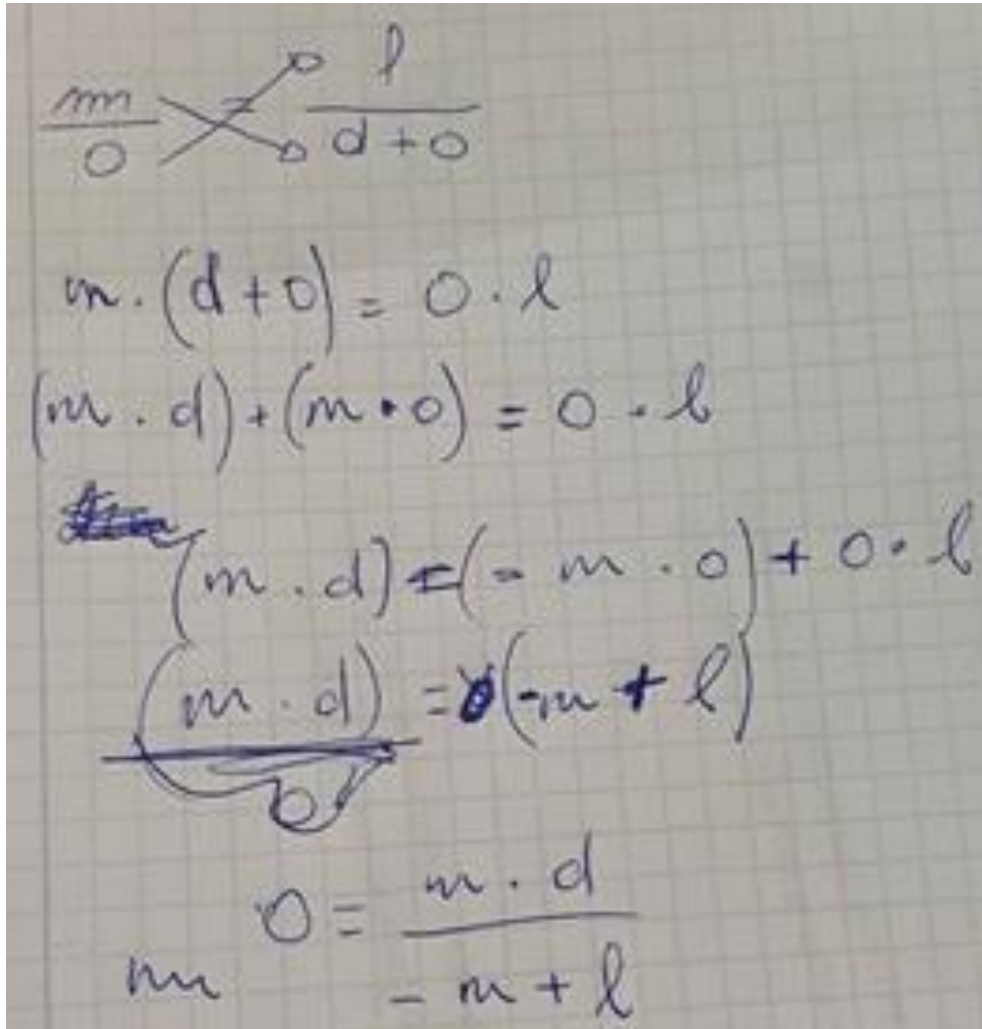 m/o = l/d+o
m . (d+o) = o . l
(m . d) + (m • o) = o . l
(m . d) = (- m . o) + o . l
(m . d) = o(-m + l)
o
o = m . d / - m + l
m